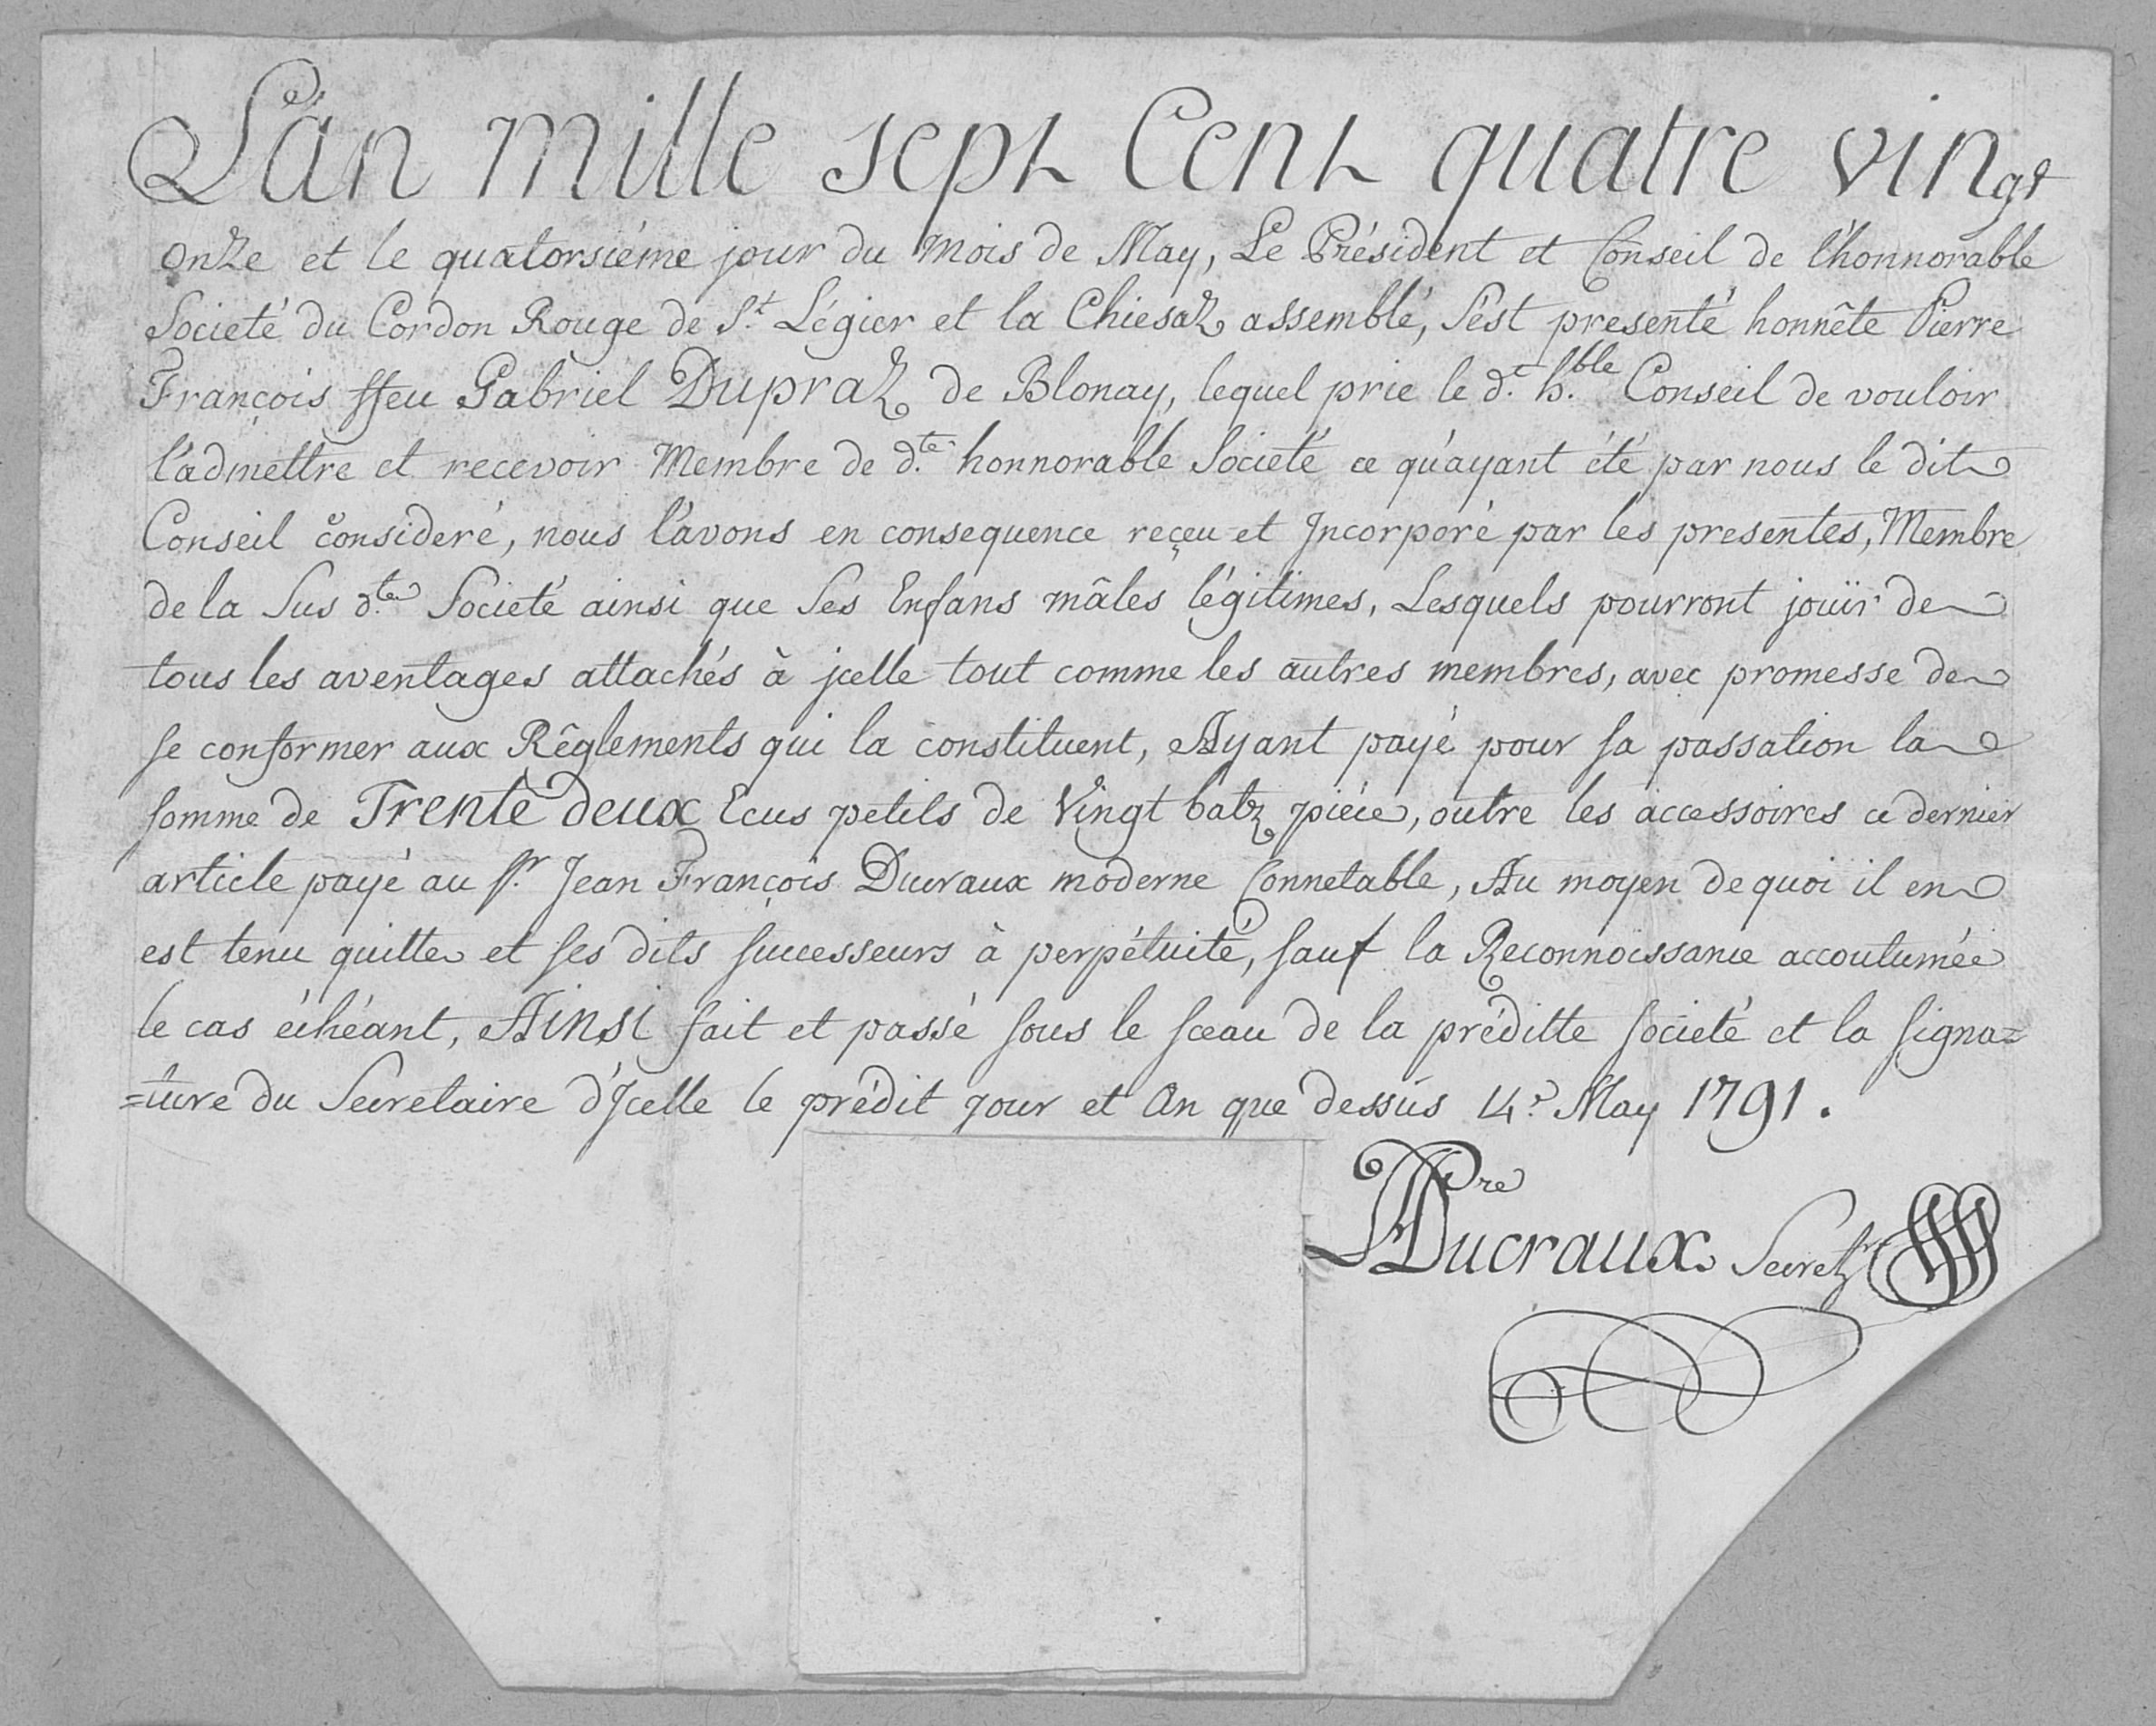 L'an mille sept Cent quatre vingt
onze et le quatorsiéme jour du mois de May, Le Président et Conseil de l'honnorable
Societé du Cordon Rouge de S.t Légier et la Chiesaz assemblé, S'est presenté honnête Pierre
François ffeu Gabriel Dupraz de Blonay, lequel prie le d.t h.ble Conseil de vouloir
l'admettre et recevoir Membre de d.te honnorable Societé ce qu'ayant été par nous le dit
Conseil consideré, nous l'avons en consequence reçeu et Jncorporé par les presentes, Membre
de la Sus d.te Societé ainsi que Ses Enfans mâles légitimes, Lesquels pourront jouïr de
tous les aventages attachés à jcelle tout comme les autres membres, avec promesse de
se conformer aux Rêglements qui la constituent, Ayant payé pour sa passation la
somme de Trente deux Ecus petits de Vingt batz piéce, outre les accessoires ce dernier
article payé au Sr. Jean François Ducraux moderne Connetable, Au moyen de quoi il en
est tenu quitte et ses dits successeurs à perpétuité, sauf la Reconnoissance accoutumée
le cas échéant, Ainsi fait et passé sous le sceau de la préditte societé et la signa=
=ture du Secretaire d'Jcelle le prédit jour et An que dessus 14.e May 1791.
Pre
Ducraux Secret.r